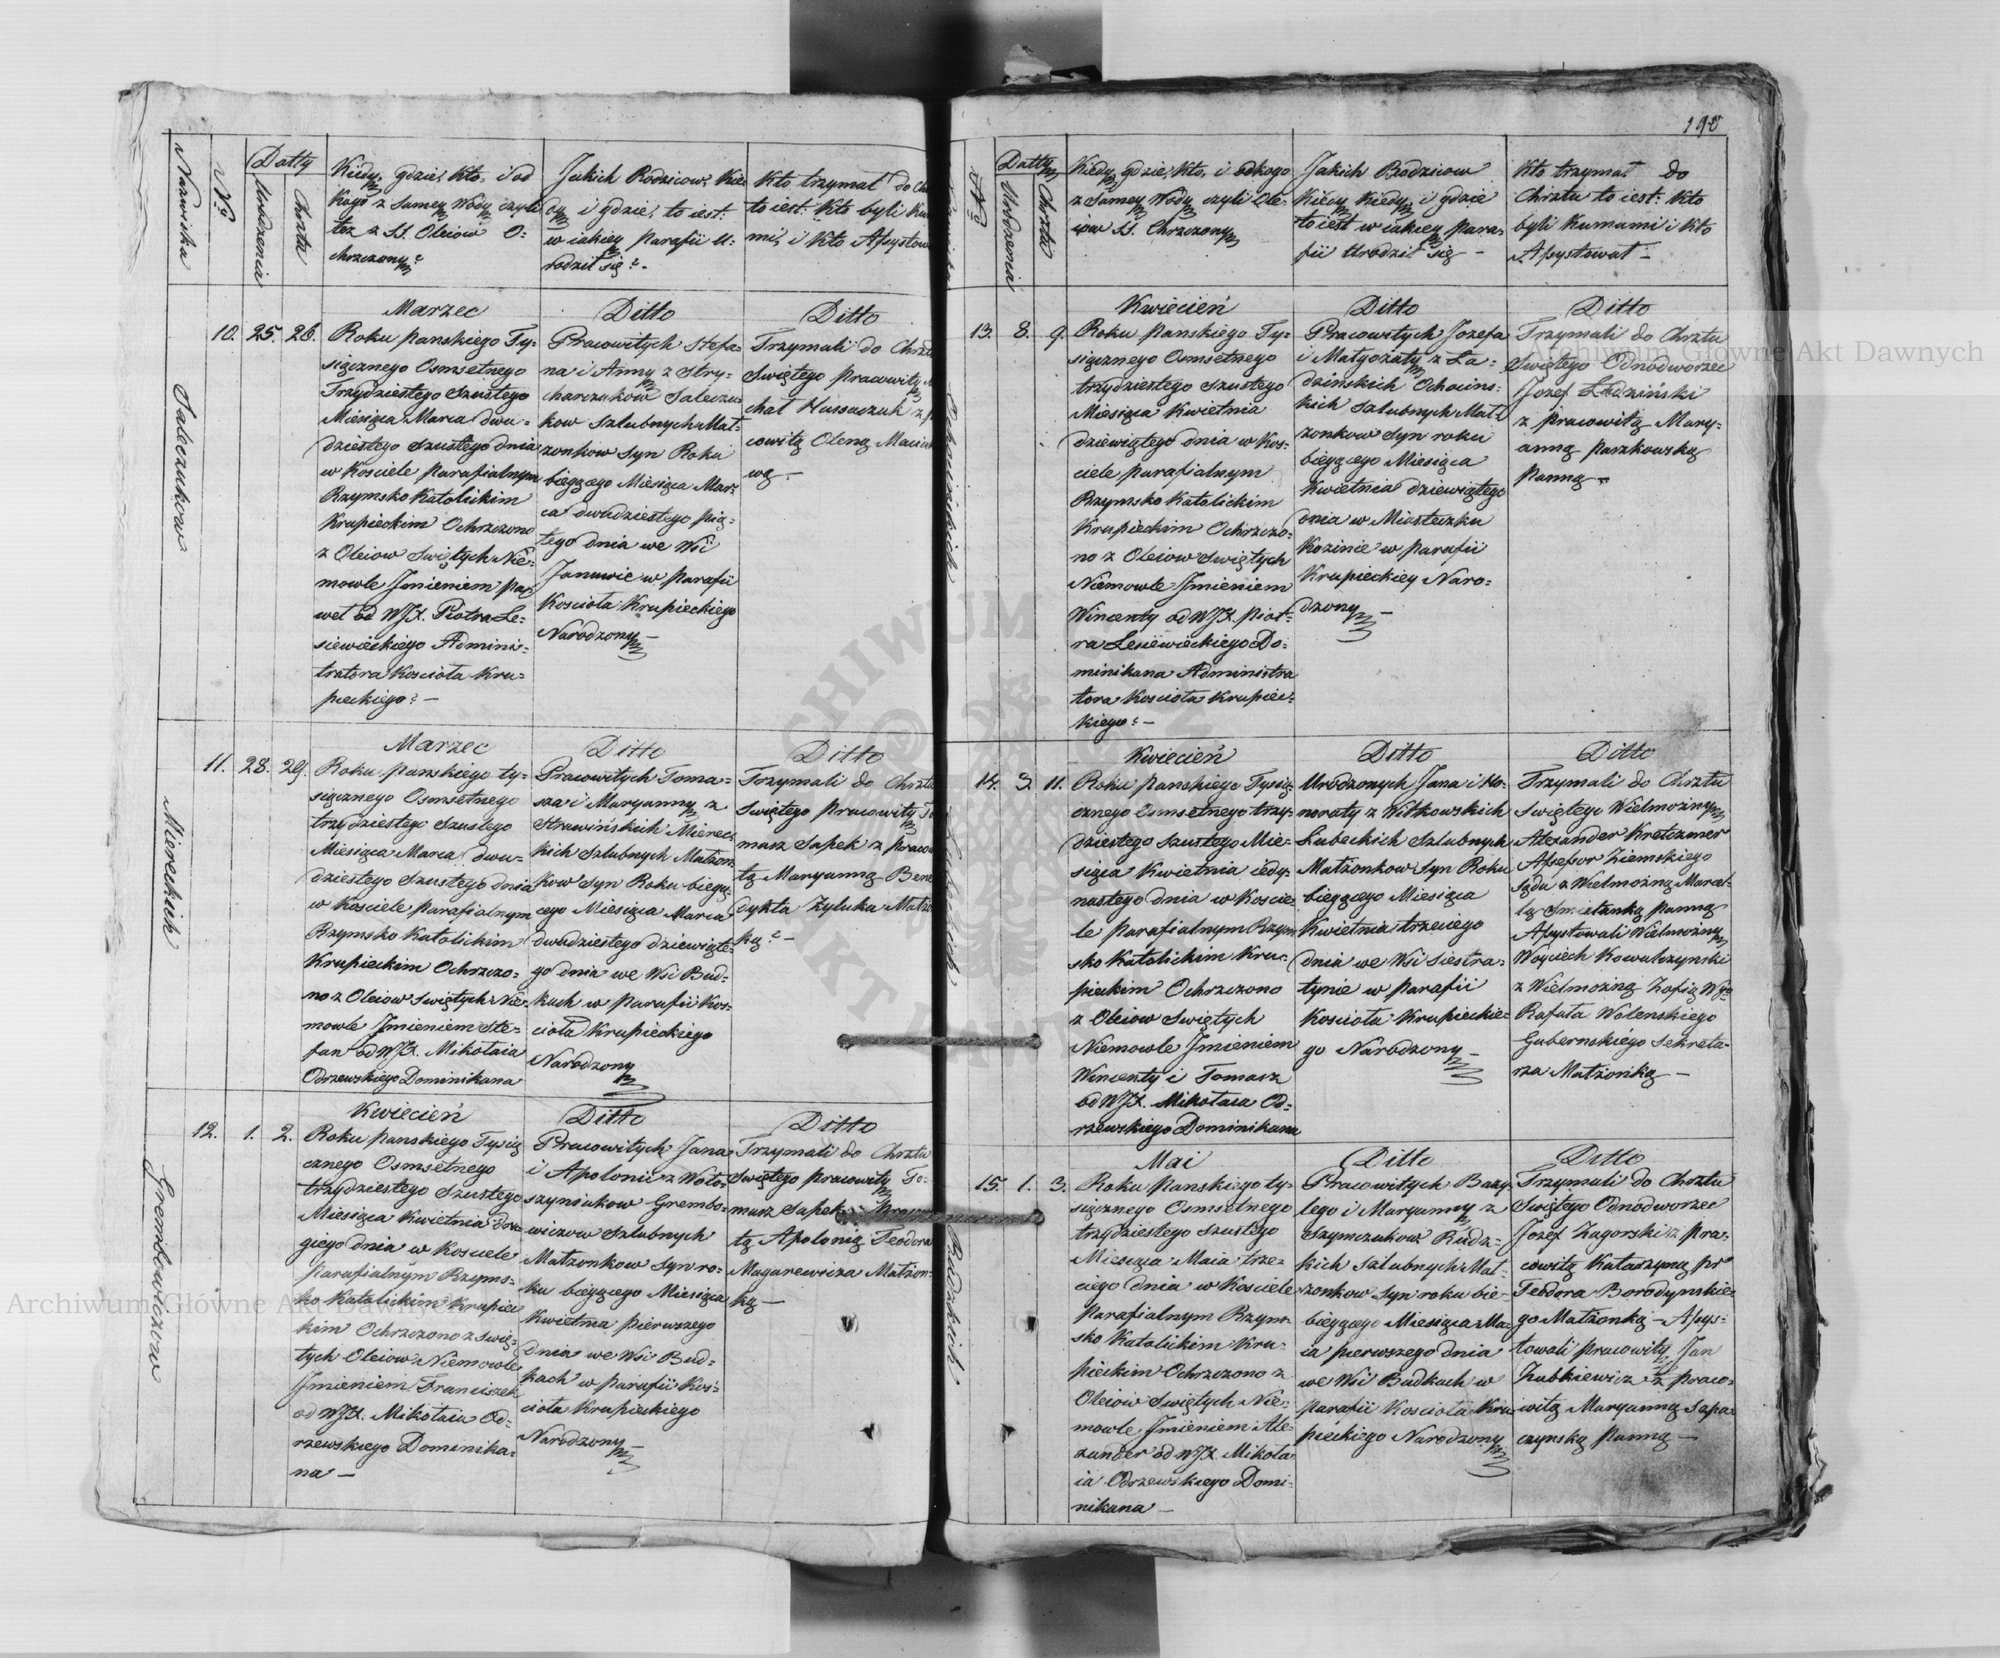 Nazwiska
N<sup>o</sup>
Datty
Urodzenia
Chrztu
Kiedy, gdzie, kto, i od
kogo z samey Wody czyli
też z SS. Oleiow O-
chrzczony?
Jakich Rodzicow, kie
dy i gdzie, to iest:
w iakiey Parafii u-
rodził się? -
Kto trzymał do
to iest: Kto byli
mi, i Kto
Saleczukow
10. 25. 26.
Marzec
Roku panskiego Ty-
siącznego Osmsetnego
Trzydziestego Szustego
Miesiąca Marca dwu-
dziestego Szustego dnia
w Kosciele parafialnym
Rzymsko Katolickim
Krupieckim Ochrzczono
z Oleiow Swiętych Nie-
mowle Jmieniem Pa
weł od WJX. Piotra Le-
siewickiego Adminis-
tratora Kosciola Kru-
pieckiego? -
Ditto
Pracowitych Stefa-
na i Anny z Stry-
charczukow Saleczu-
kow Szlubnych Mał-
zonkow Syn Roku
bieggcego Miesiąca Mar-
ca dwudziestego pią-
tego dnia we Wsi
Januwie w Parafii
Kosciola Krupieckiego
Narodzony -
Ditto
Trzymali do Chrztu
Swiętego pracowity
chał Hussaczuk z
cowitą Oleną
wą -
Miereckich
11. 28. 29.
Marzec
Roku panskiego ty-
siącznego Osmsetnego
trzydziestego szustego
Miesiąca Marca dwu-
dziestego Szustego dnia
w Kosciele parafialnym
Rzymsko Katolickim
Krupieckim Ochrzczo-
no z Oleiow Swiętych Nie-
mowle Jmieniem Ste-
fan od WJX. Mikołaia
Odrzewskiego Dominikana
Ditto
Pracowitych Toma-
sza i Maryanny z
Strawińskich Mierec-
kich Szlubnych Małżon
kow Syn Roku biegą-
cego Miesiąca Marca
dwudziestego dziewiąte-
go dnia we Wsi Bud-
kach w Parafii Kos-
ciola Krupieckiego
Narodzony
Ditto
Trzymali do Chrztu
Swiętego pracowity To
masz Sapek z praco
tą Maryanną Bene
dykta Zyluka
ką? -
Grembowiczow
12. 1. 2.
Kwiecień
Roku panskiego Tysią
cznego Osmsetnego
trzydziestego Szustego
Miesiąca Kwietnia dru-
giego dnia w Kosciele
Parafialnym Rzyms-
ko Katolickim Krupiec
kim Ochrzczono z Swię-
tych Oleiow Niemowle
Jmieniem Franciszek
od WJX. Mikołaia Od-
rzewskiego Dominika-
na -
Ditto
Pracowitych Jana
i Apolonii z Woło-
szyniukow Grembo-
wiczow Szlubnych
Małzonkow Syn ro-
ku bieggcego Miesiąca
Kwietnia pierwszego
dnia we Wsi Bud-
kach w parafii Kos-
ciola Krupieckiego
Narodzony -
Ditto
Trzymali do Chrztu
Swiętego pracowity To-
masz Sapek
tą Apolonią Teodora
Magarewicza Małżon-
ką -
190
N<sup>o</sup>
Datty
Urodzenia
Chrztu
Kiedy, gdzie, Kto, i odkogo
z Samey Wody czyli Ole-
iow SS. Chrzczony
Jakich Rodzicow
Kiedy i gdzie
to iest w iakiey Para-
fii Urodził się -
Kto trzymał do
Chrztu to iest: Kto
byli Kumami i Kto
Assystował -
Ochocińskich
13. 8. 9.
Kwiecień
Roku panskiego Ty-
siącznego Osmsetnego
trzydziestego szustego
Miesiąca Kwietnia
dziewiątego dnia w Kos-
ciele parafialnym
Rzymsko Katolickim
Krupieckim Ochrzczo-
no z Oleiow Swiętych
Niemowle Jmieniem
Wincenty od WJX. Piot-
ra Lesiewickiego Do-
minikana Administra
tora Kosciola Krupiec-
kiego? -
Ditto
Pracowitych Jozefa
i Małgozaty z Ła-
dzińskich Ochocins-
kich szlubnych Mał-
zonkow Syn roku
bieggcego Miesiąca
Kwietnia dziewiątego
dnia w Miasteczku
Kozinie w parafii
Krupieckiey Naro-
dzony -
Ditto
Trzymali do Chrztu
Swiętego Odnodworzec
Jozef Ładziński
z pracowitą Mary-
anną Paszkowską
Panną -
Lubeckich
14. 3. 11.
Kwiecień
Roku panskiego Tysią-
cznego Osmsetnego trzy-
dziestego szustego Mie-
siąca Kwietnia iedy-
nastego dnia w Koscie-
le parafialnym Rzym
sko Katolickim Kru-
pieckim Ochrzczono
z Oleiow Swiętych
Niemowle Jmieniem
Wincenty i Tomasz
od WJX. Mikołaia Od-
rzewskiego Dominikana
Ditto
Urodzonych Jana i Ho-
noraty z Witkowskich
Lubeckich Szlubnych
Małżonkow Syn Roku
bieggcego Miesiąca
Kwietnia trzeciego
dnia we Wsi Siestra-
tynie w Parafii
Kosciola Krupieckie-
go Narodzony -
Ditto
Trzymali do Chrztu
Swiętego Wielmożny
Alexander Kretczmer
Assesor Ziemskiego
Sądu z Wielmożną Marcel-
lą Smietanką Panną
Assystowali Wielmożny
Woyciech Kowalczynski
z Wielmożną Zofią
Rafała Wolenskiego
Gubernskiego Sekreta-
rza Małżonką -
Rudzkich
15. 1. 3.
Mai
Roku Panskiego ty-
siącznego Osmsetnego
trzydziestego szustego
Miesiąca Maia trze-
ciego dnia w Kosciele
Parafialnym Rzym-
sko Katolickim Kru-
pieckim Ochrzczono z
Oleiow Swiętych Nie-
mowle Jmieniem Ale-
xander od WJX. Mikoła-
ia Odrzewskiego Domi-
nikana -
Ditto
Pracowitych Bazy-
lego i Maryanny z
Szymczukow Rudz-
kich Szlubnych Mał-
zonkow Syn roku bie-
bieggcego Miesiąca Ma-
ia pierwszego dnia
we Wsi Budkach w
parafii Kosciola Kru
pieckiego Narodzony
Ditto
Trzymali do Chrztu
Swiętego Odnodworzec
Jozef Zagorski z Pra-
cowitą Katarzyną
Teodora Borodynskie-
go Małżonką - Assys-
towali pracowity Jan
Zubkiewicz z praco-
witą Maryanną Sapa-
czynską Panną -
Archiwum Główne Akt Dawnych
Archiwum Główne Akt Dawnych